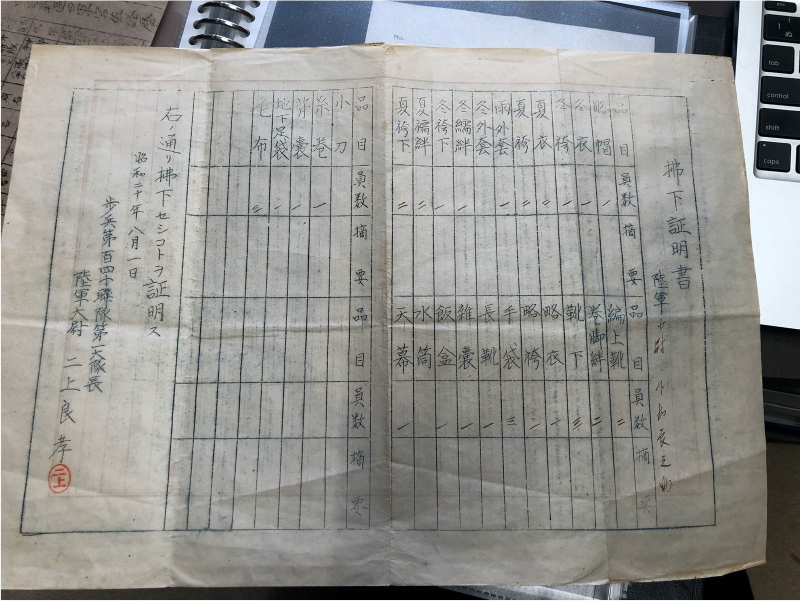 拂下証明書
陸軍少尉
品目 員数 摘要 品目 員数 摘要
略帽 一 編上靴 二
冬衣 一 巻脚絆 二
冬袴 一 靴下 三
夏衣 一 略衣 一
夏袴 一 略袴 一
雨外套 一 手袋 三
冬外套 一 長靴 一
冬繻絆 一 雑嚢 一
冬袴下 一 飯盒 一
夏襦絆 二 水筒 一
夏袴下 二 天幕 一
品目 員数 摘要 品目 員数 摘要
小刀 一
糸巻 一
嚢 一
地下足袋 一
毛布 三
右ノ通リ拂下セシコトヲ証明ス
昭和二十年八月一日
歩兵第百四十聯隊第一大隊長
陸軍大尉 二上良孝
二上
tab
control
shift
caps